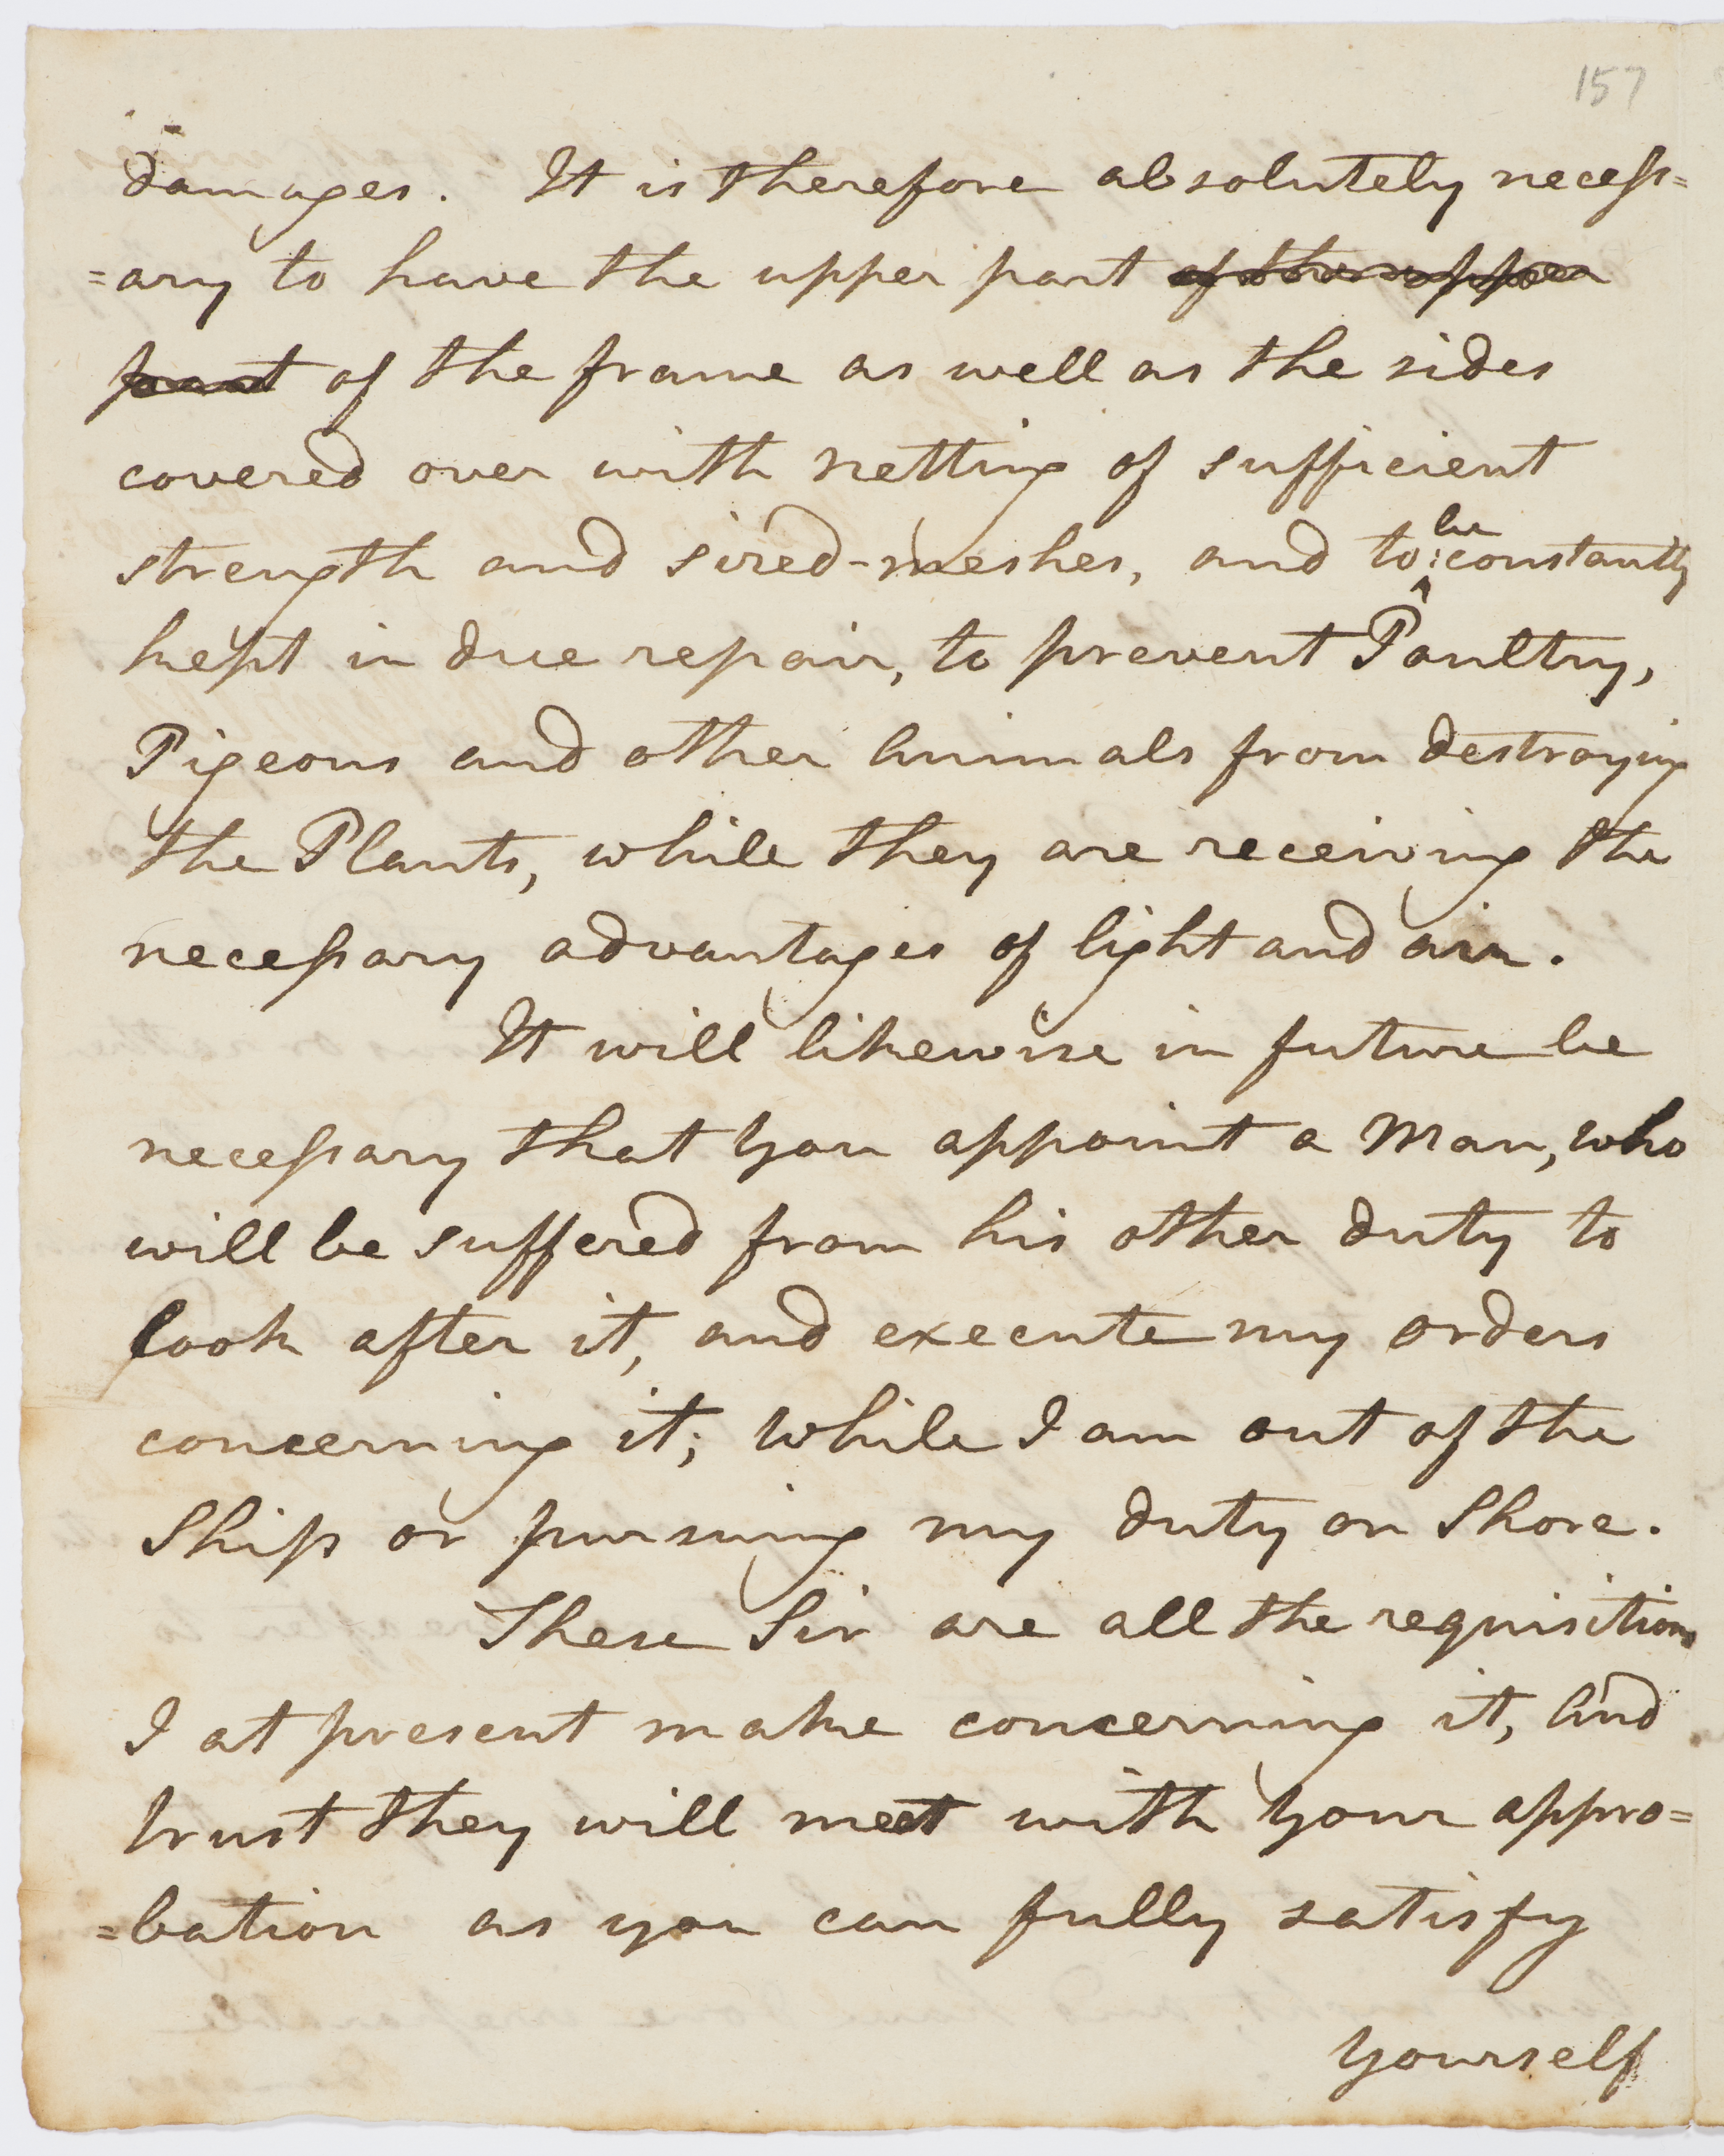 157
damages. It is therefore absolutely necess=
=ary to have the upper part of the upper
part of the frame as well as the sides
covered over with netting of sufficient
strength and sized-meshes, and to be constantly
kept in due repair, to prevent Poultry,
Pigeons and other Animals from destroying
the Plants, while they are receiving the
necessary advantages of light and air.
It will likewise in future be
necessary that you appoint a Man, who
will be suffered from his other duty to
look after it, and execute my orders
concerning it; while I am out of the
Ship or pursuing my duty on Shore.
These Sir are all the requisitions
I at present make concerning it, And
trust they will meet with your appro=
=bation as you can fully satisfy
yourself